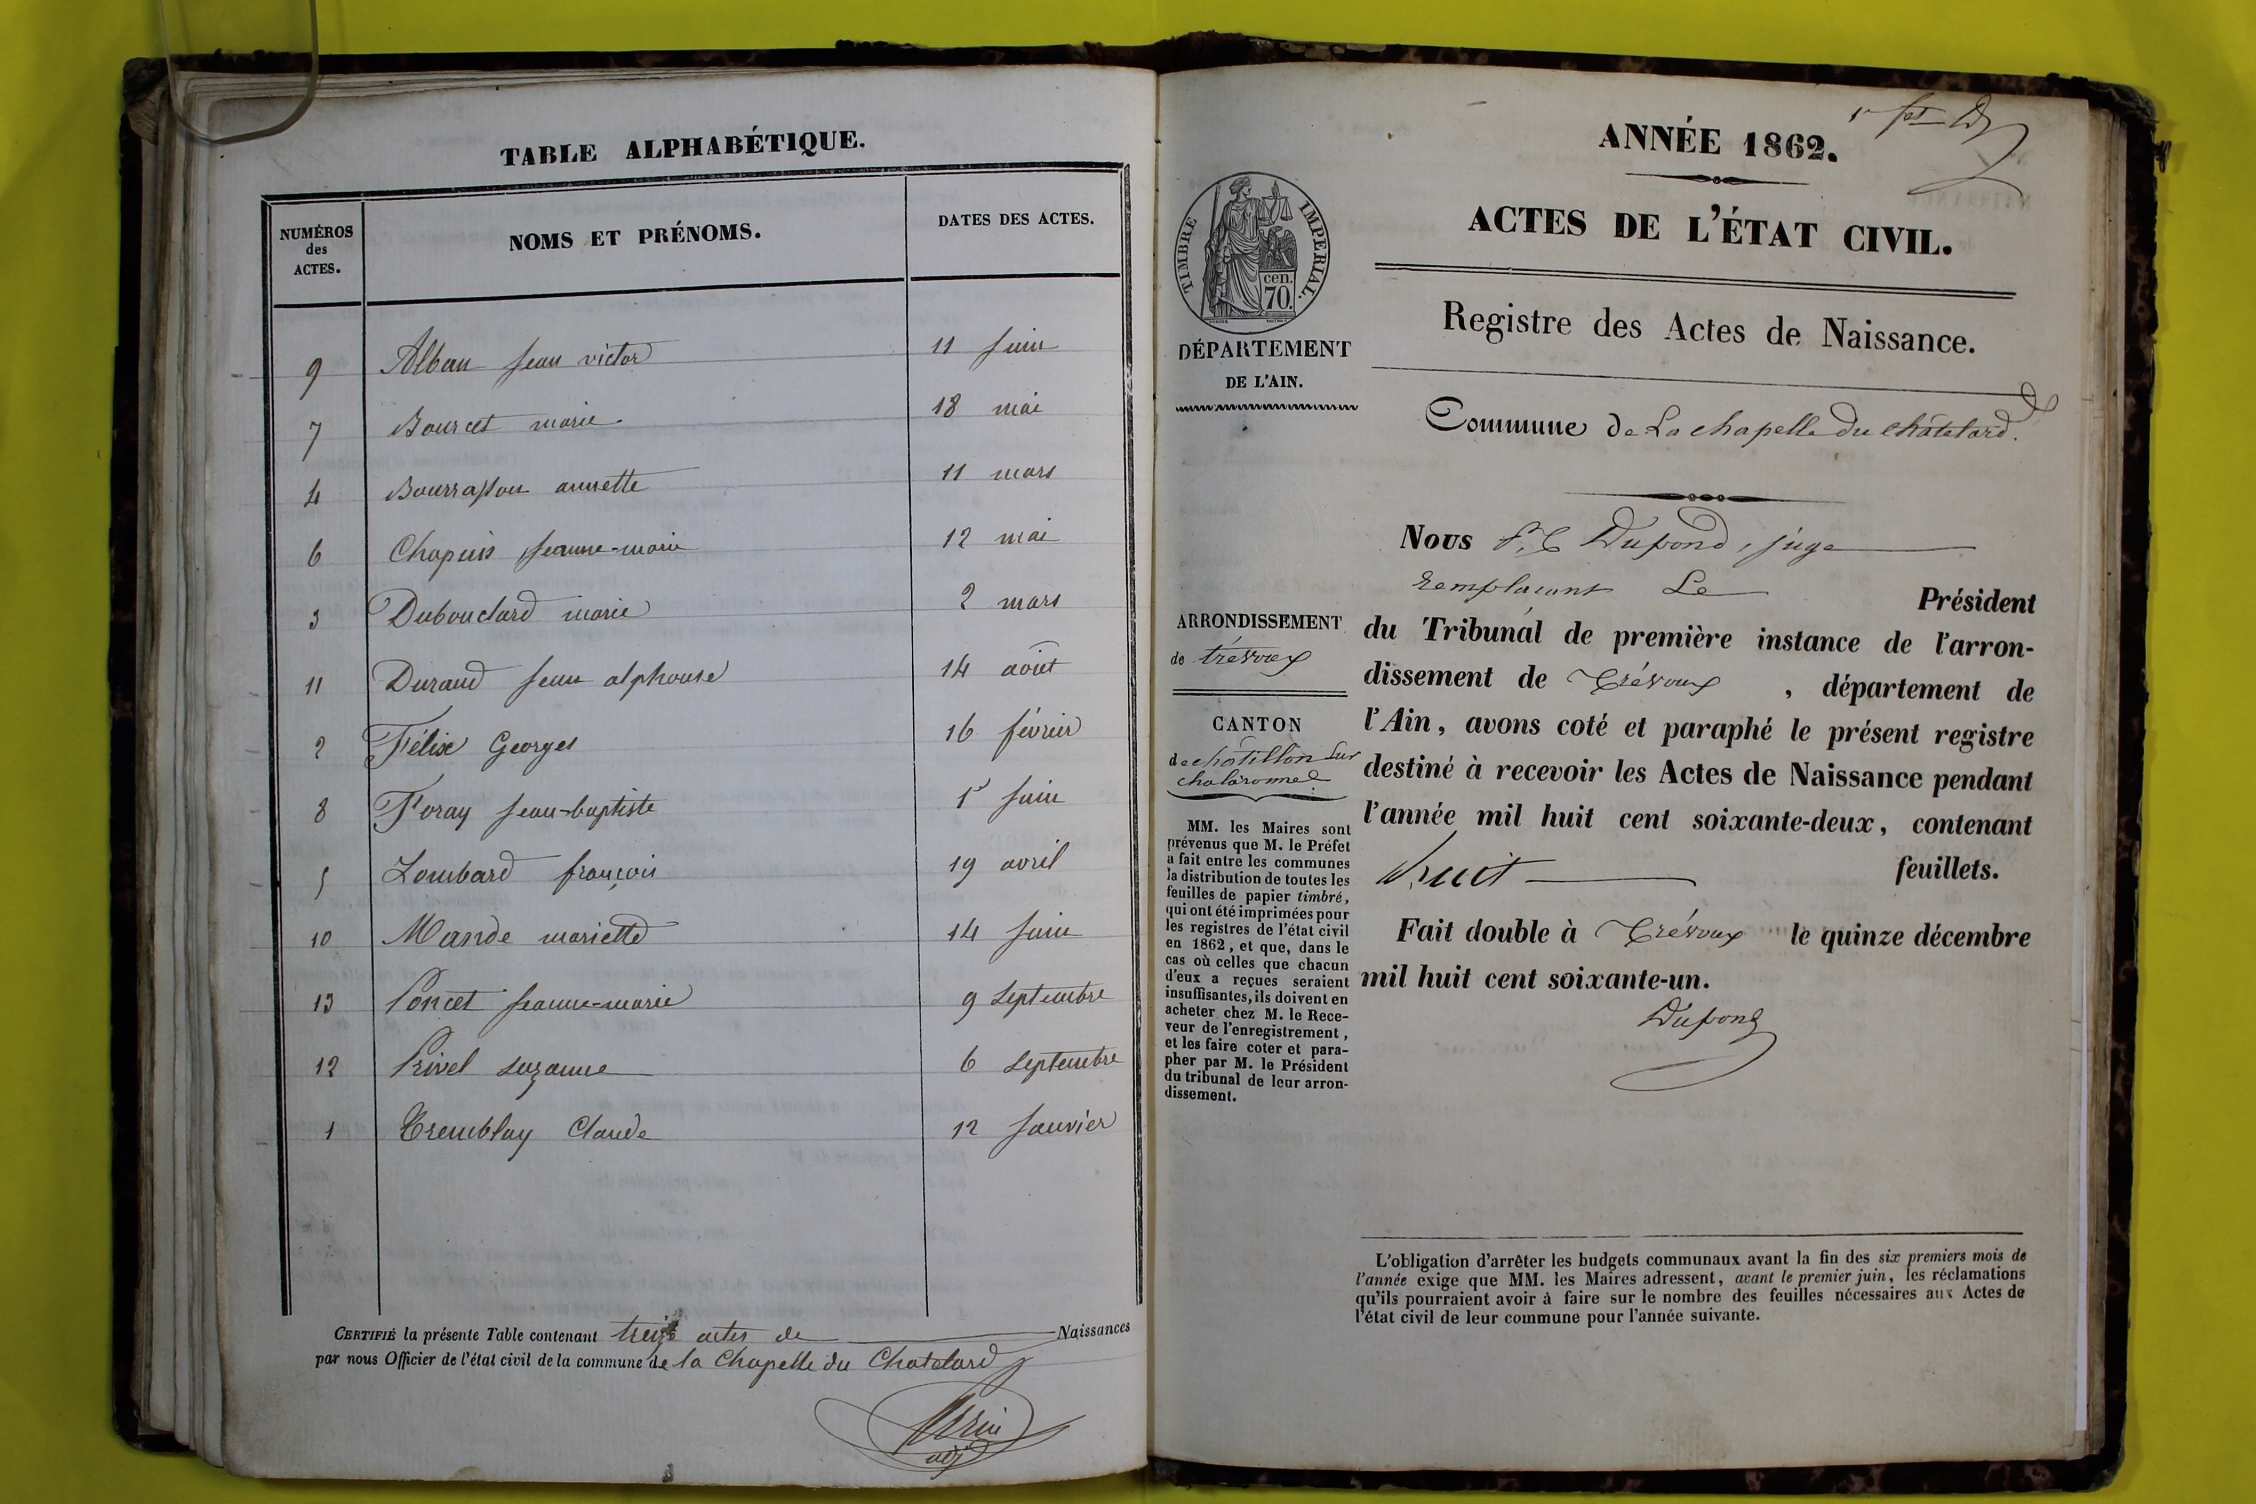 TABLE ALPHABÉTIQUE.
NUMÉROS des ACTES. NOMS ET PRÉNOMS. DATES DES ACTES.
9 Alban jean victor 11 juin
7 Bourcet marie 18 mai
4 Bourrasson annette 11 mars
6 Chapuis jeanne-marie 12 mai
3 Dubouclard marie 2 mars
11 Durand jean alphonse 14 août
2 Félix Georges 16 février
8 Foray jean-baptiste 1r juin
5 Lombard françois 19 avril
10 Mande mariette 14 juin
13 Poncet jeanne-marie 9 septembre
12 Privel suzanne 6 septembre
1 Tremblay Claude 12 janvier
CERTIFIÉ la présente Table contenant treize actes de Naissances
par nous Officier de l'état civil de la commune de la Chapelle du Chatelard
adj
ANNÉE 1862.
ACTES DE L'ÉTAT CIVIL.
TIMBRE IMPERIAL.
cen.
70.
DÉPARTEMENT
DE L'AIN.
ARRONDISSEMENT
de trévoux
CANTON
de chatillon sur
chalaronne
MM. les Maires sont
prévenus que M. le Préfet
a fait entre les communes
la distribution de toutes les
feuilles de papier timbré,
qui ont été imprimées pour
les registres de l'état civil
en 1862, et que, dans le
cas où celles que chacun
d'eux a reçues seraient
insuffisantes, ils doivent en
acheter chez M. le Rece-
veur de l'enregistrement,
et les faire coter et para-
pher par M. le Président
du tribunal de leur arron-
dissement.
Registre des Actes de Naissance.
Commune de La chapelle du châtelard.
NOUS Dupond, juge
remplacant Le Président
du Tribunal de première instance de l'arron-
dissement de Trévoux, département de
l'Ain, avons coté et paraphé le présent registre
destiné à recevoir les Actes de Naissance pendant
l'année mil huit cent soixante-deux, contenant
huit feuillets.
Fait double à Trévoux le quinze décembre
mil huit cent soixante-un.
Dupond
L'obligation d'arrêter les budgets communaux avant la fin des six premiers mois de
l'année exige que MM. les Maires adressent, avant le premier juin, les réclamations
qu'ils pourraient avoir à faire sur le nombre des feuilles nécessaires aux Actes de
l'état civil de leur commune pour l'année suivante.